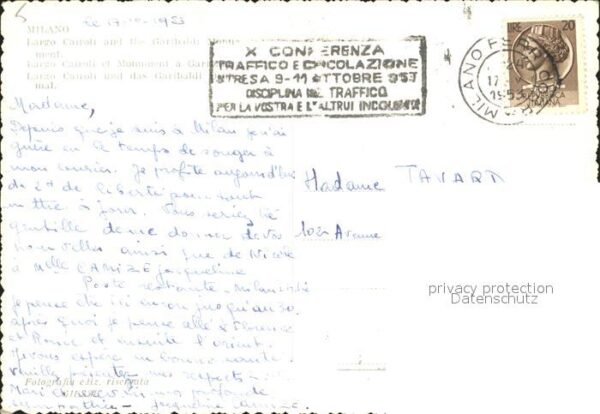 le 17-10-1953
MILANO
Largo Cairoli and the Garibaldi Monu-
ment.
Largo Cairoli et Monument a Gari
Largo Cairoli und das Garibaldi
mal.
X CONFERENZA
TRAFFICO E CIRCOLAZIONE
STRESA 9-11 OTTOBRE 953
DISCIPLINA DEL TRAFFICO
PER LA VOSTRA E L'ALTRUI INCOLUMITÀ
LIRE 20
MILANO FERROVIA
17
1953
Madame,
Depuis que je suis à Milan je n'ai
guère eu le temps de songer à
mon courrier. Je profite aujourd'hui
de de liberté pour tout
mettre à jour. Vous seriez très
gentille de me donner de vos
nouvelles ainsi que de
à Melle Jacqueline
Poste restante - Milan
Je pense être ici encore jusqu'au 30.
après quoi je pense aller à Florence
et Rome et ensuite l'orient.
Je vous espère en bonne santé
Veuillez présenter mes respects
profonde
sympathie
Madame TAVARD
102 Avenue
privacy protection
Datenschutz
Fotografia ediz. riservata